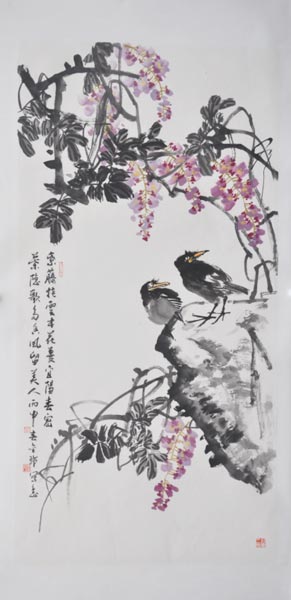 紫藤挂雲木花蔓宜陽春密
葉隱歌鳥香風留美人丙申